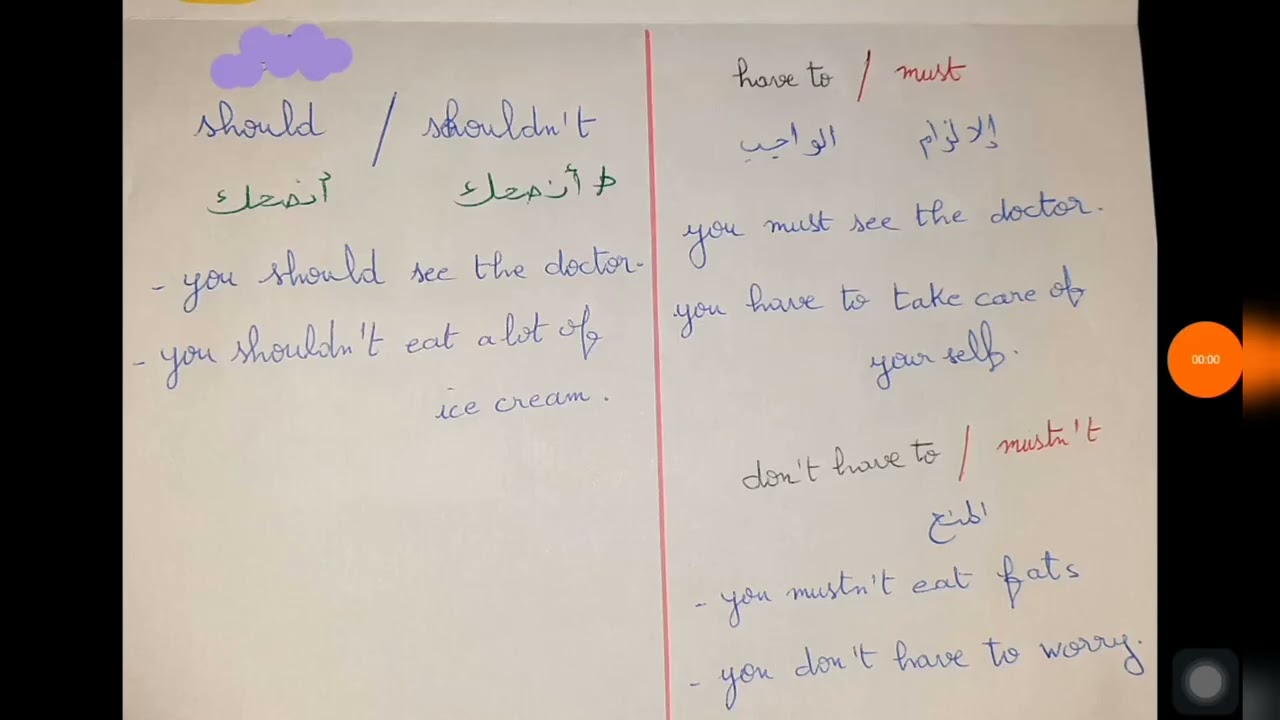 should / shouldn't
أنصحك لا أنصحك
- you should see the doctor.
- you shouldn't eat a lot of
ice cream.
have to / must
الواجب الإلزام
you must see the doctor.
you have to take care of
your self.
don't have to / mustn't
المنع
- you mustn't eat fats
- you don't have to worry.
00:00